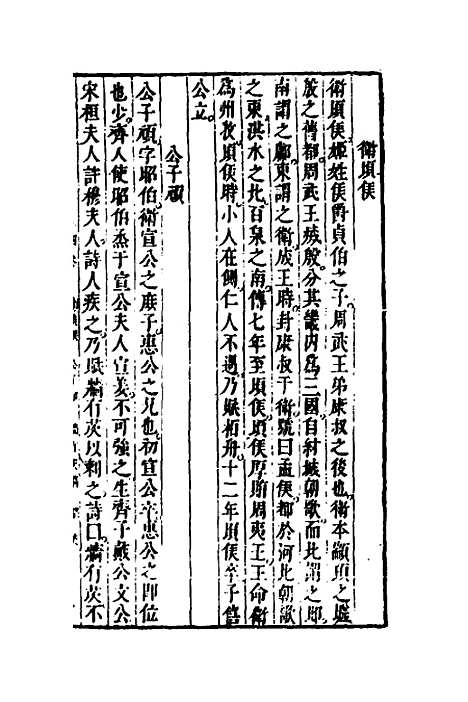 衛頃侯
衛頃侯姬姓侯爵貞伯之子周武王弟康叔之後也衛本顓頊之墟
殷之舊都周武王滅殷分其畿內為三國自紂城朝歌而北謂之邶
南謂之鄘東謂之衛成王時封康叔于衛號曰孟侯都於河北朝歌
之東淇水之北百泉之南傳七年至頃侯頃侯厚賂周夷王王命衛
為州牧頃侯時小人在側仁人不遇乃賦柏舟十二年頃侯卒子僖
公立
公子頑
公子頑字昭伯衛宣公之庶子惠公之兄也初宣公卒惠公之即位
也少齊人使昭伯烝于宣公夫人宣姜不可強之生齊子戴公文公
宋桓夫人許穆夫人詩人疾之乃賦牆有茨以刺之詩曰牆有茨不